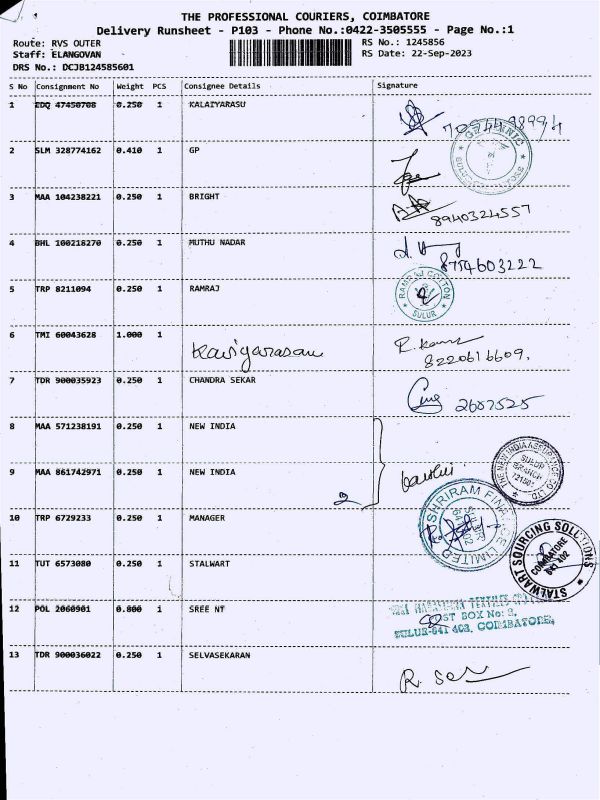 THE PROFESSIONAL COURIERS, COIMBATORE
Delivery Runsheet - P103 - Phone No.:0422-3505555 - Page No.:1
Route: RVS OUTER RS No.: 1245856
Staff: ELANGOVAN RS Date: 22-Sep-2023
DRS No.: DCJB124585601
S No Consignment No Weight PCS Consignee Details Signature
1 EDQ 47450708 0.250 1 KALAIYARASU
2 SLM 328774162 0.410 1 GP
3 MAA 104238221 0.250 1 BRIGHT 8940324557
4 BHL 100218270 0.250 1 MUTHU NADAR 8754603222
5 TRP 8211094 0.250 1 RAMRAJ RAMRAJ COTTON SULUR
6 TMI 60043628 1.000 1 Kaviyarasan 8220616609.
7 TDR 900035923 0.250 1 CHANDRA SEKAR 2687525
8 MAA 571238191 0.250 1 NEW INDIA
9 MAA 861742971 0.250 1 NEW INDIA 2 THE NEW INDIA ASSURANCE CO. LTD. SULUR BRANCH
10 TRP 6729233 0.250 1 MANAGER SHRIRAM FINANCE LIMITED
11 TUT 6573080 0.250 1 STALWART STALWART SOURCING SOLUTIONS COIMBATORE 641 402
12 POL 2060901 0.800 1 SREE NT
POST BOX No: 2,
SULUR-641 402, COIMBATORE.
13 TDR 900036022 0.250 1 SELVASEKARAN